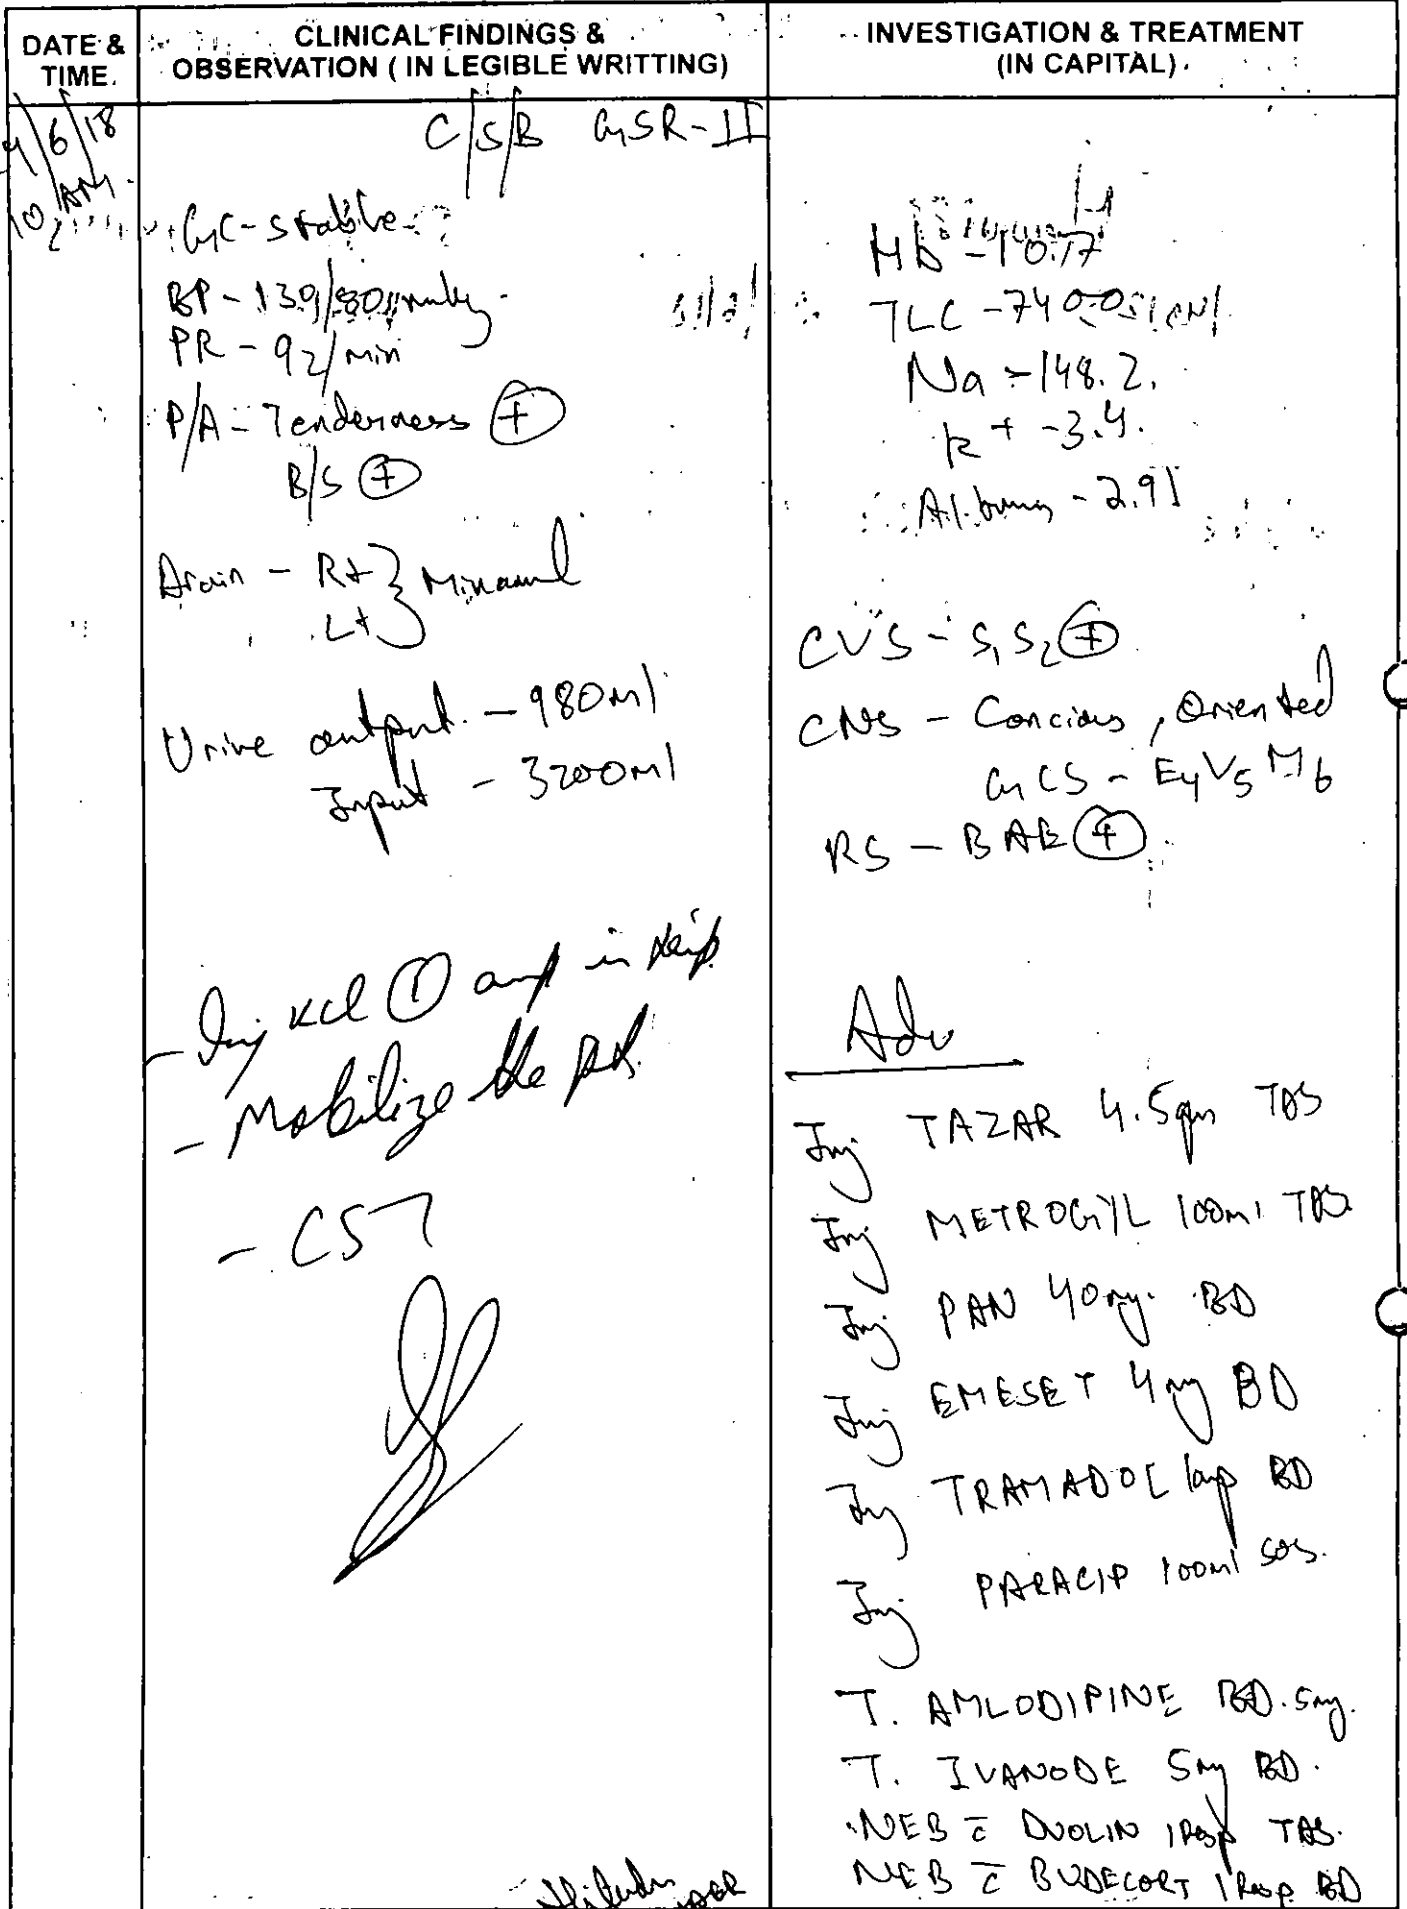 DATE & TIME.
CLINICAL FINDINGS & OBSERVATION ( IN LEGIBLE WRITTING)
INVESTIGATION & TREATMENT (IN CAPITAL)
4/6/18
10 AM
C/S/B GSR-II
GC-stable
BP-139/80mmHg
PR - 92/min
P/A - Tenderness +
B/S +
Drain - Rt } Minamal
Lt
Urine output - 980ml
Input - 3200ml
- Inj KCl 1 amp in drip
- Mobilize the pt.
- CST
Hb -10.17
TLC -7400
Na - 148.2.
K+ -3.4.
Albumin - 2.91
CVS - S1S2 +
CNS - Concious, Oriented
GCS - E4V5M6
RS - BAE +
Adv
Inj TAZAR 4.5gm TDS
Inj METROGYL 100ml TDS
Inj. PAN 40mg. BD
Inj EMESET 4mg BD
Inj TRAMADOL 1amp BD
Inj PARACIP 100ml SOS.
T. AMLODIPINE BD. 5mg.
T. IVANODE 5mg BD.
NEB c̄ DUOLIN 1Resp TDS.
NEB c̄ BUDECORT 1Resp BD